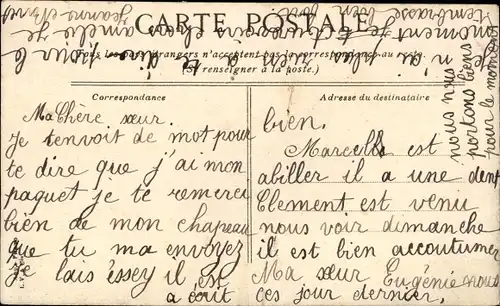 CARTE POSTALE
Tous les pays étrangers n'acceptent pas la correspondance au recto
(Se renseigner à la poste.)
Correspondance
Ma Chère sœur.
Je tenvoit de mot pour
te dire que j'ai mon
paquet je te remerci
bien de mon chapeau
que tu ma envoyez
Je lais éssey il est
a cout
Adresse du destinataire
bien.
Marcelle est
abiller il a une dent
Clement est venu
nous voir dimanche
il est bien accoutumez
Ma sœur Eugénie nous
ces jour dernier.
nous nous
portons bien
pour le moment
je n'ai plus a te dire pour le
moment
chère amelie je
t'embrasse bien fort
Jeanne